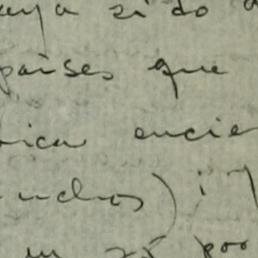 aya sido
paises que
rica encie
uchos) ¡
un 25 por